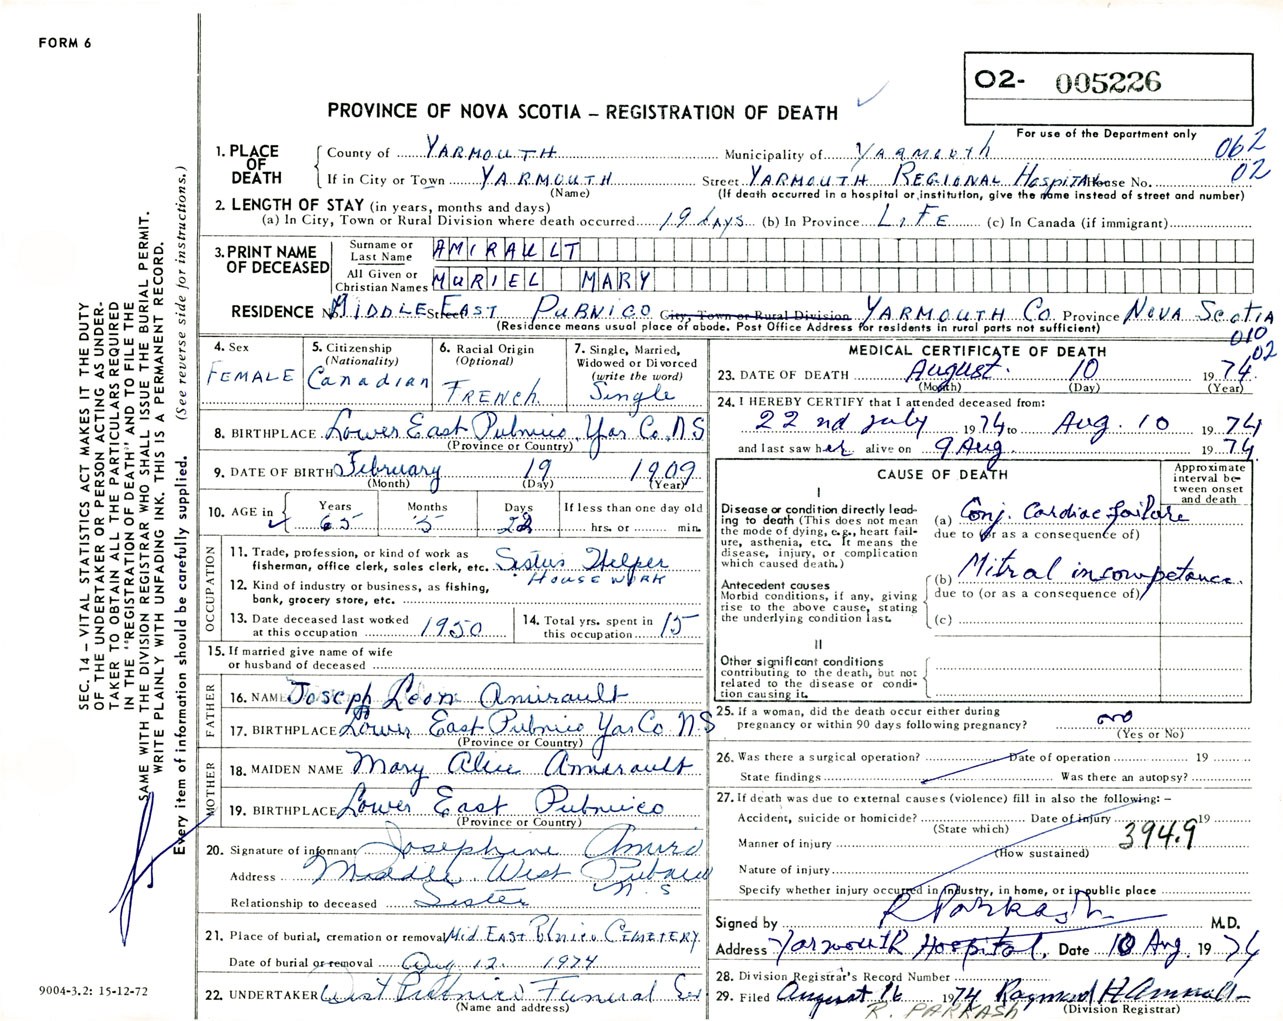 FORM 6
O2- 005226
PROVINCE OF NOVA SCOTIA – REGISTRATION OF DEATH
For use of the Department only
062
02
1. PLACE OF DEATH
County of YARMOUTH Municipality of YARMOUTH
If in City or Town YARMOUTH Street YARMOUTH REGIONAL HOSPITAL House No.
(Name) (If death occurred in a hospital or institution, give the name instead of street and number)
2. LENGTH OF STAY (in years, months and days)
(a) In City, Town or Rural Division where death occurred 19 days (b) In Province LIFE (c) In Canada (if immigrant)
3. PRINT NAME OF DECEASED
Surname or Last Name AMIRAULT
All Given or Christian Names MURIEL MARY
RESIDENCE No. MIDDLE Street EAST PUBNICO City, Town or Rural Division YARMOUTH CO Province NOVA SCOTIA
(Residence means usual place of abode. Post Office Address for residents in rural parts not sufficient)
010
02
4. Sex FEMALE
5. Citizenship (Nationality) Canadian
6. Racial Origin (Optional) FRENCH
7. Single, Married, Widowed or Divorced (write the word) Single
8. BIRTHPLACE Lower East Pubnico, Yar Co. N.S
(Province or Country)
9. DATE OF BIRTH February 19 1909
(Month) (Day) (Year)
10. AGE in Years 65 Months 5 Days 22 If less than one day old hrs. or min.
OCCUPATION
11. Trade, profession, or kind of work as fisherman, office clerk, sales clerk, etc. Sisters Helper
HOUSE WORK
12. Kind of industry or business, as fishing, bank, grocery store, etc.
13. Date deceased last worked at this occupation 1950
14. Total yrs. spent in this occupation 15
15. If married give name of wife or husband of deceased
FATHER
16. NAME Joseph Leon Amirault
17. BIRTHPLACE Lower East Pubnico Yar Co. N.S
(Province or Country)
MOTHER
18. MAIDEN NAME Mary Alice Amirault
19. BIRTHPLACE Lower East Pubnico
(Province or Country)
20. Signature of informant Josephine Amiro
Address Middle West Pubnico
N.S
Relationship to deceased Sister
21. Place of burial, cremation or removal Mid EAST Pubnico CEMETERY
Date of burial or removal Aug 12 1974
22. UNDERTAKER West Pubnico Funeral
(Name and address)
MEDICAL CERTIFICATE OF DEATH
23. DATE OF DEATH August 10 1974
(Month) (Day) (Year)
24. I HEREBY CERTIFY that I attended deceased from:
22nd July 1974 to Aug. 10 1974
and last saw her alive on 9 Aug. 1974
CAUSE OF DEATH
Approximate interval between onset and death
I
Disease or condition directly leading to death (This does not mean the mode of dying, e.g., heart failure, asthenia, etc. It means the disease, injury, or complication which caused death.)
(a) Conj. Cardiac failure
due to (or as a consequence of)
Antecedent causes
Morbid conditions, if any, giving rise to the above cause, stating the underlying condition last.
(b) Mitral incompetance
due to (or as a consequence of)
(c)
II
Other significant conditions contributing to the death, but not related to the disease or condition causing it.
25. If a woman, did the death occur either during pregnancy or within 90 days following pregnancy? no
(Yes or No)
26. Was there a surgical operation? Date of operation 19
State findings Was there an autopsy?
27. If death was due to external causes (violence) fill in also the following: –
Accident, suicide or homicide? Date of injury 19
(State which)
394.9
Manner of injury
(How sustained)
Nature of injury
Specify whether injury occurred in industry, in home, or in public place
Signed by R Parkash M.D.
Address Yarmouth Hospital. Date 10 Aug. 1974
28. Division Registrar's Record Number
29. Filed August 16 1974 Raymond H Amirault
(Division Registrar)
R. PARKASH
SEC. 14 – VITAL STATISTICS ACT MAKES IT THE DUTY
OF THE UNDERTAKER OR PERSON ACTING AS UNDER-
TAKER TO OBTAIN ALL THE PARTICULARS REQUIRED
IN THE "REGISTRATION OF DEATH" AND TO FILE THE
SAME WITH THE DIVISION REGISTRAR WHO SHALL ISSUE THE BURIAL PERMIT.
WRITE PLAINLY WITH UNFADING INK. THIS IS A PERMANENT RECORD.
Every item of information should be carefully supplied. (See reverse side for instructions.)
9004-3.2: 15-12-72